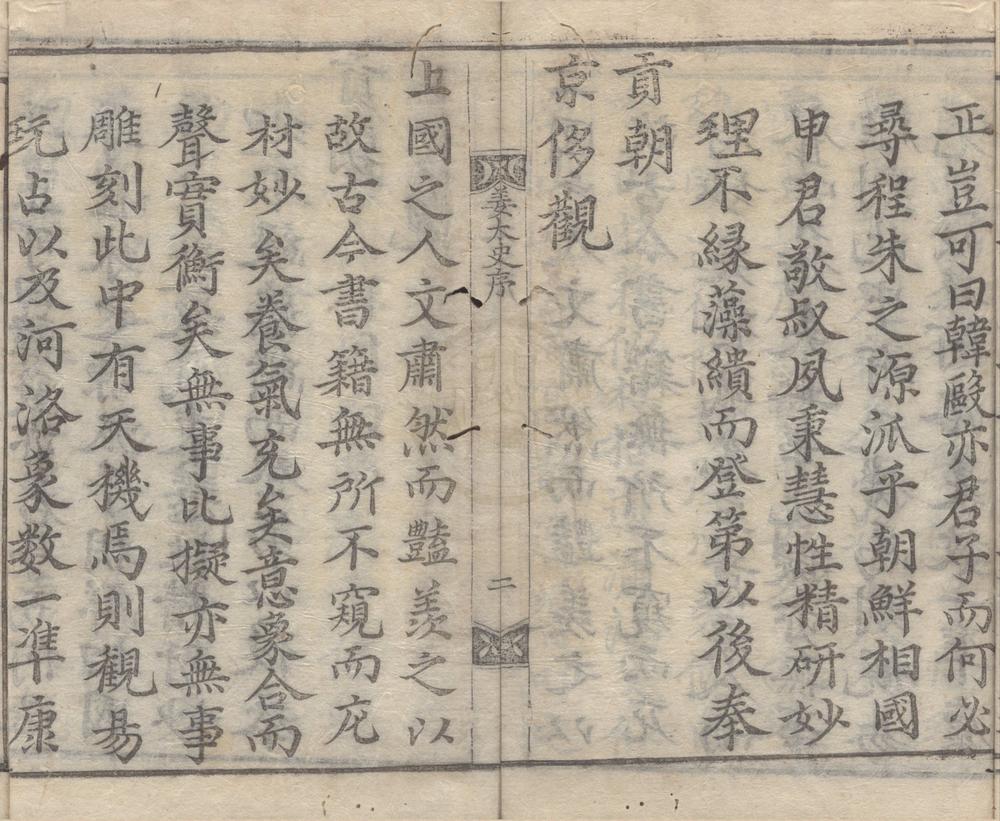 正豈可曰韓毆亦君子而何必
尋程朱之源派乎朝鮮相國
申君敬叔夙秉慧性精研妙
理不緣藻繢而登第以後奉
貢朝
京侈觀
姜太史序
二
上國之人文肅然而豔羨之以
故古今書籍無所不窺而尤
材妙矣養氣充矣意象合而
聲實衡矣無事比擬亦無事
雕刻此中有天機焉則觀易
玩占以及河洛象數一準康